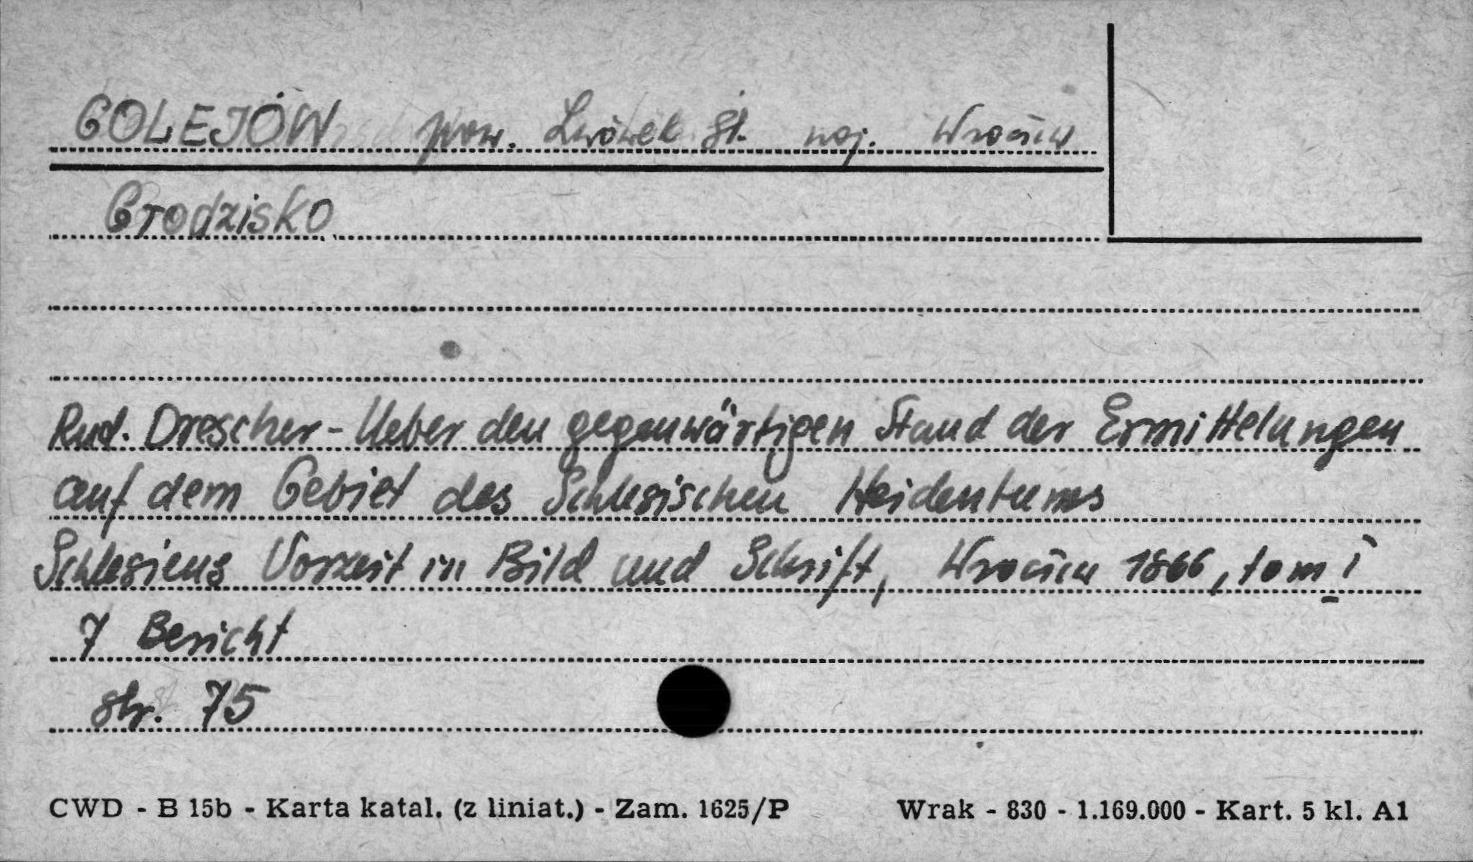 GOLEJÓW pow. Lwówek Śl. woj. Wrocław
Grodzisko
Rud. Drescher - Ueber den gegenwärtigen Stand der Ermittelungen
auf dem Gebiet des Schlesischen Heidentums
Schlesiens Vorzeit in Bild und Schrift, Wrocław 1866, tom I
7 Bericht
str. 75
CWD - B 15b - Karta katal. (z liniat.) - Zam. 1625/P Wrak - 830 - 1.169.000 - Kart. 5 kl. A1